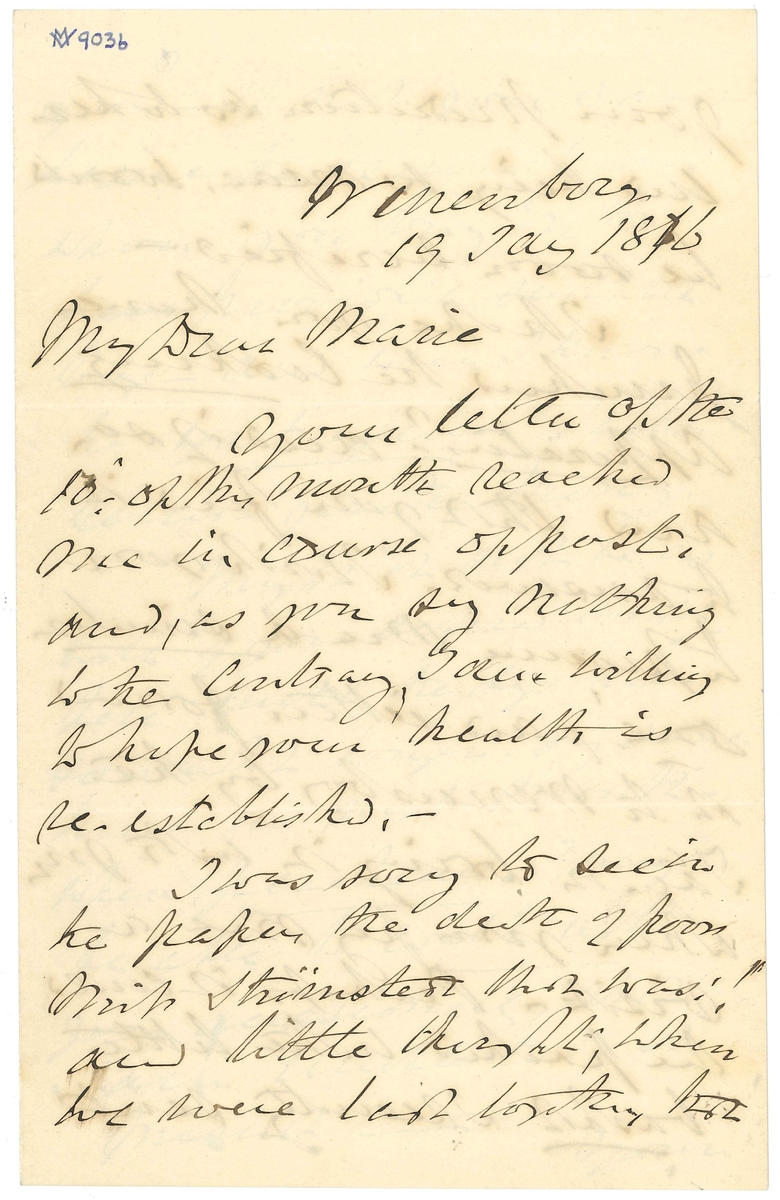 9036
Wenersborg
19 Jany 1876
My Dear Marie
Your letter of the
10th of this month reached
me in course of post,
and, as you say nothing
to the contrary, I am willing
to hope your health is
re-established. —
I was sorry to see in
the papers the death of poor
Miss Strömstedt that was!"
and little thought, when
we were last together that